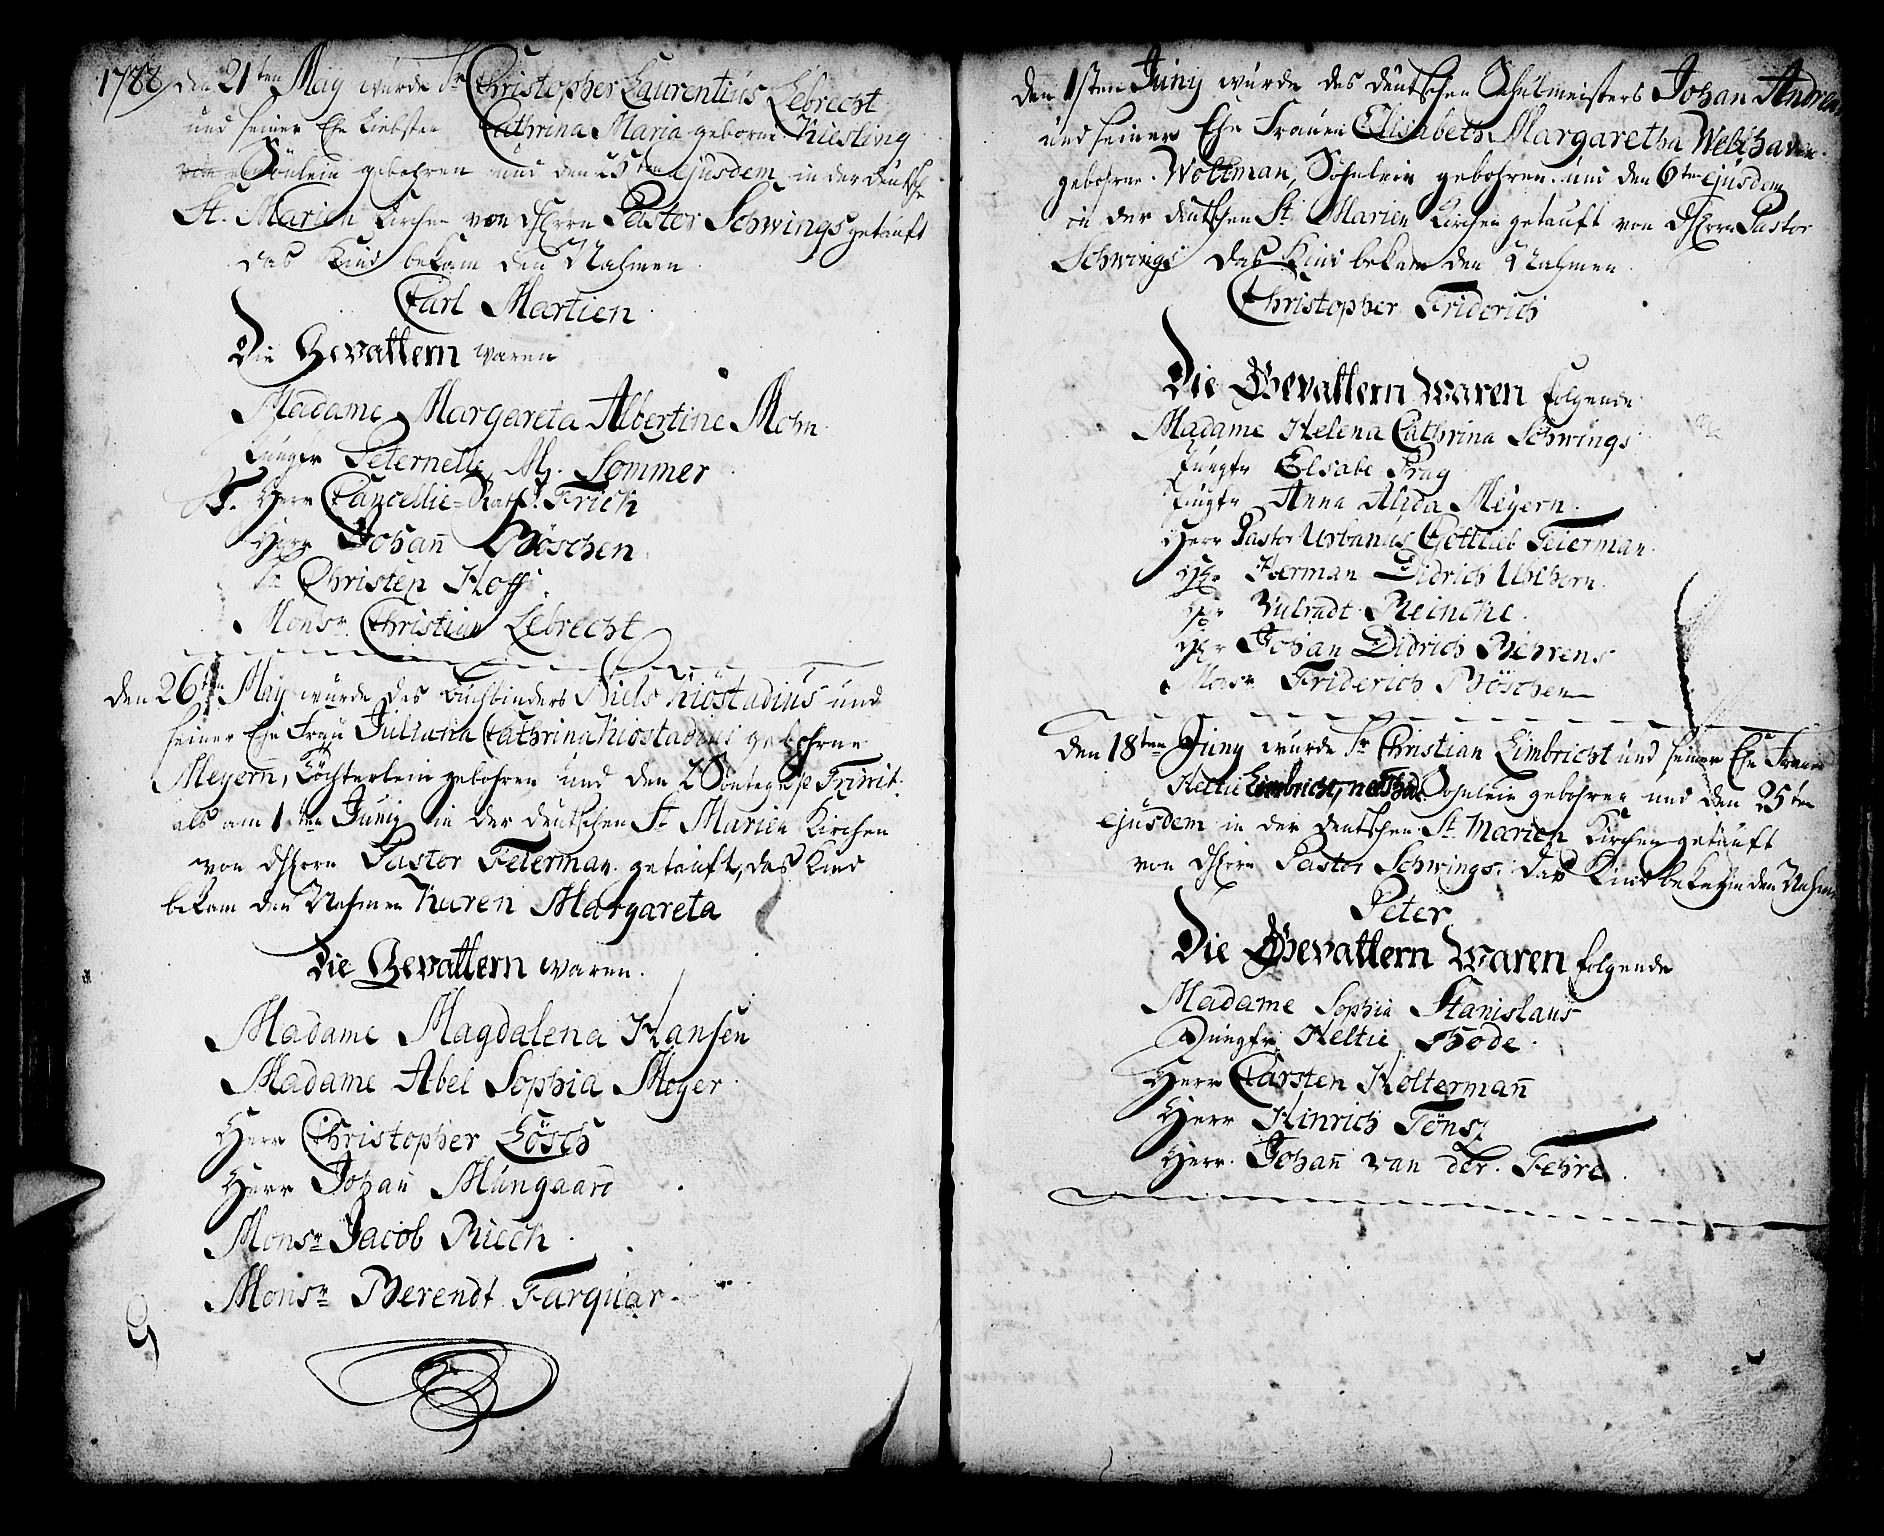 1788 den 21ten May wurde Sr Christopher Laurentius Lebrecht
und seiner Ehe Liebsten Cathrina Maria geborne Kiesling
ein Sönlein gebohren und den 25ten ejusdem in der deutsche
St. Marien Kirchen von Herrn Pastor Schwings getauft
das Kind bekam den Nahmen
Carl Martien
Die Gevattern waren
Madame Margareta Albertine Mohn
Jungfr Peternelle M. Sommer
Herr Cancellie-Rath Frich
Herr Johan̄ Böschen
Sr Christen Hoff
Monsr Christian Lebrecht
den 26ten May wurde des Buchbinders Niels Kiöstadius und
seiner Ehe Frau Juliana Cathrina Kiöstadius gebohrne
Meyern, Töchterlein gebohren und den 2 Sontag p Trinit:
als am 1ten Juny in der deutschen St Marien Kirchen
von Herrn Pastor Feierman getauft, das Kind
bekam den Nahmen Karen Margareta
Die Gevattern waren.
Madame Magdalena Hansen
Madame Abel Sophia Meyer
Herr Christopher Lösch
Herr Johan Mungaard
Monsr Jacob Riech
Monsr Berendt Farquar
den 1sten Juny wurde des deutschen Schulmeisters Johan Andreas
und seiner Ehe Frauen Elisabeth Margaretha Welthaven
gebohrne Woltman, Söhnlein gebohren und den 6ten ejusdem
in der deutschen St. Marien Kirchen getauft von Herrn Pastor
Schwings das Kind bekam den Nahmen
Christopher Friderich
Die Gevattern waren folgende
Madame Helena Cathrina Schwings
Jungfr Elsabe Krag
Jungfr Anna Alida Meyern
Herr Pastor Urbanus Gottlieb Feierman
Hr Herman Didrich Uhlhorn
Hr Vulradt Reinche
Hr Johan Didrich Behrens
Monsr Friderich Böschen
den 18ten Juny wurde Sr Christian Limbricht und seiner Ehe Frauen
Heltie Limbricht, Sohnlein gebohren und den 25ten
ejusdem in der deutschen St. Marien Kirchen getauft
von Herrn Pastor Schwings. das Kind bekahm den Nahmen
Peter
Die Gevattern waren folgende
Madame Sophia Stanislaus
Jungfr Heltie Thode
Herr Carsten Holterman̄
Herr Hinrich Töns
Herr Johan̄ van der Fehre